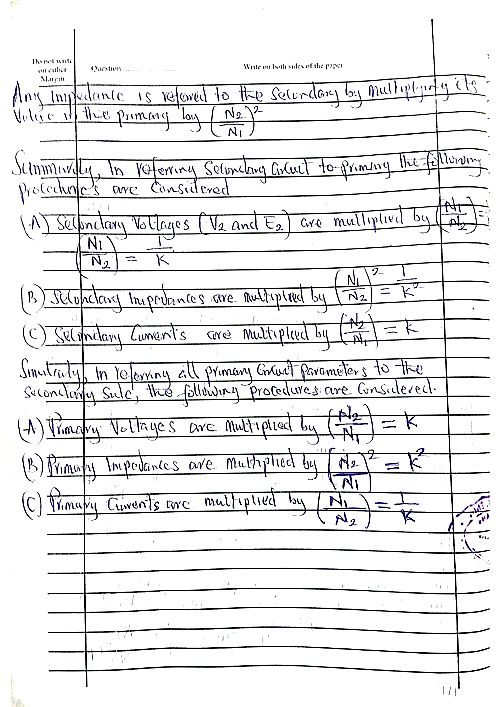 Do not write
on either
Margin
Question..............
Write on both sides of the paper
Any Impedance is referred to the Secondary by multiplying its
Value in the primary by (N2/N1)²
Summarily, In referring Secondary Circuit to primary the following
procedures are Considered
(A) Secondary Voltages (V2 and E2) are multiplied by (N1/N2) =
(N1/N2) = 1/K
(B) Secondary Impedances are multiplied by (N1/N2)² = 1/K²
(C) Secondary Currents are multiplied by (N2/N1) = K
Similarly, In referring all primary Circuit parameters to the
Secondary Side, the following procedures are Considered.
(A) Primary Voltages are multiplied by (N2/N1) = K
(B) Primary Impedances are multiplied by (N2/N1)² = K²
(C) Primary Currents are multiplied by (N1/N2) = 1/K